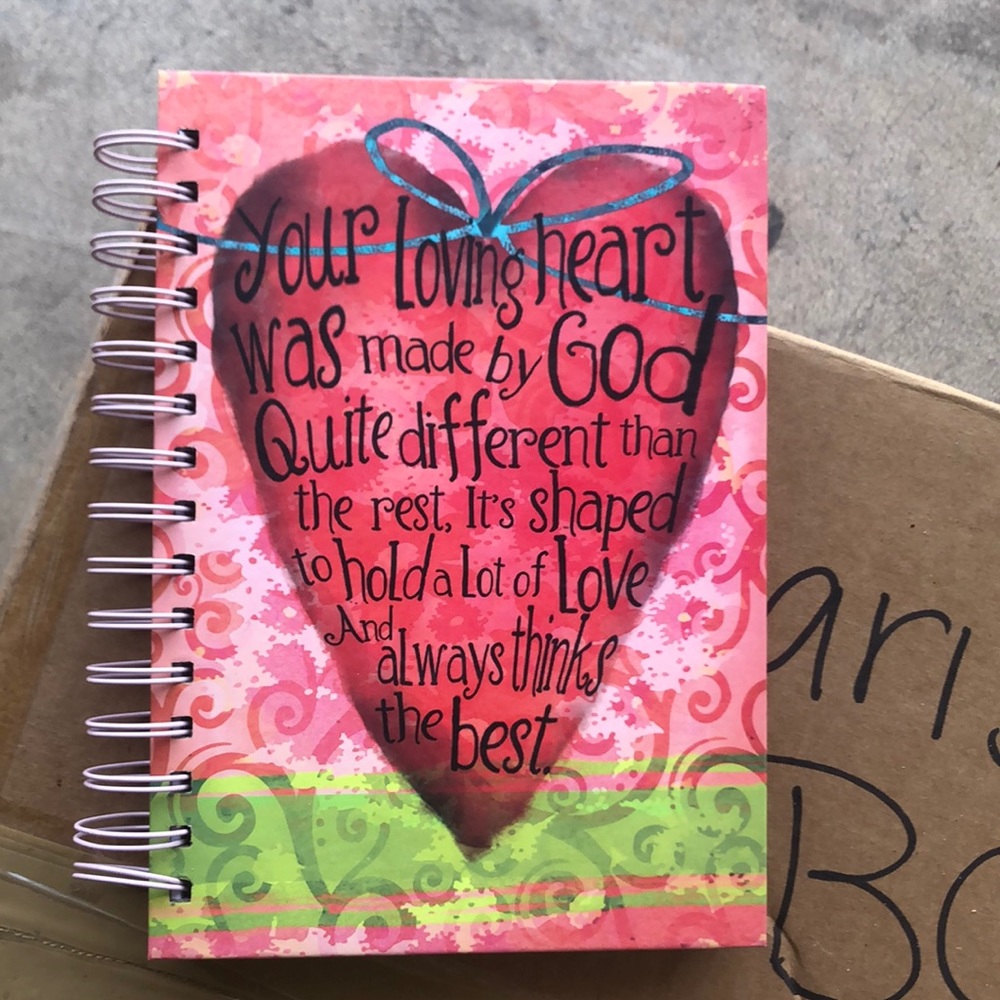 Your Loving heart
was made by God
Quite different than
the rest, It's shaped
to hold a Lot of Love
And always thinks
the best.